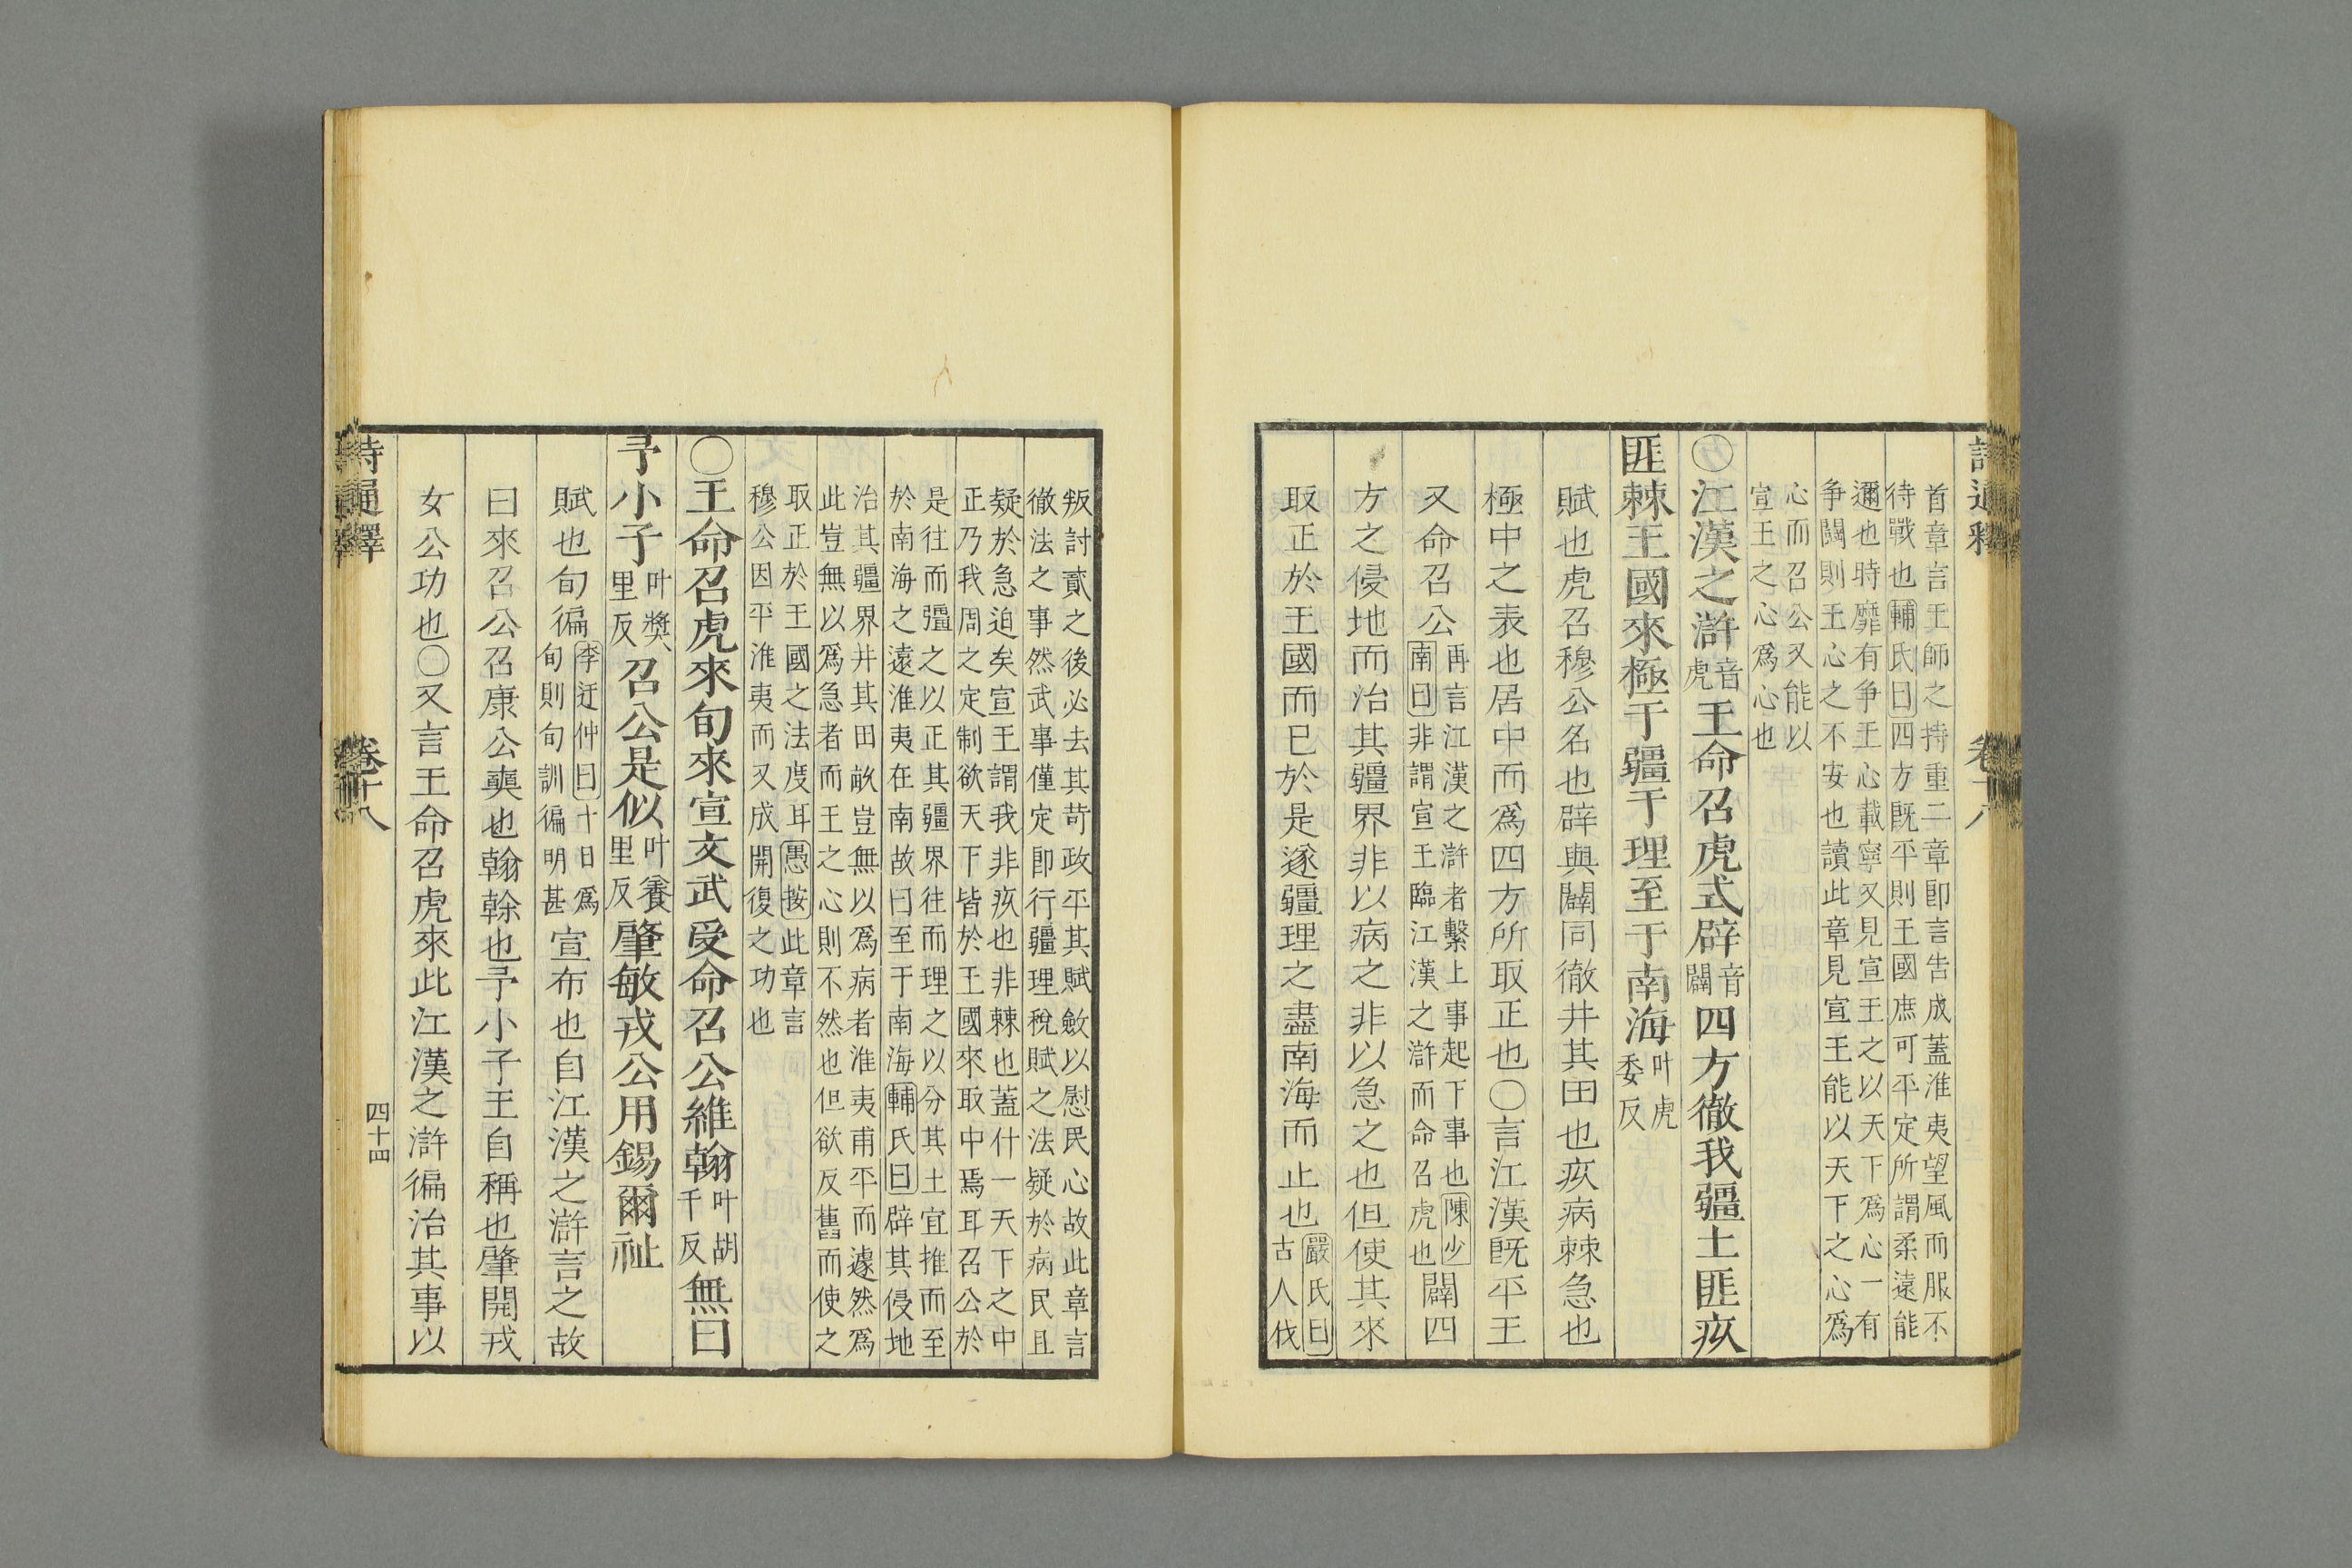 詩通釋
卷十八
首章言王師之持重二章卽言告成蓋淮夷望風而服不
待戰也輔氏曰四方既平則王國庶可平定所謂柔遠能
邇也時靡有争王心載寧又見宣王之以天下爲心一有
争鬭則王心之不安也讀此章見宣王能以天下之心爲
心而召公又能以
宣王之心爲心也
〇江漢之滸音虎王命召虎式辟音闢四方徹我疆土匪疚
匪棘王國來極于疆于理至于南海叶虎委反
賦也虎召穆公名也辟與闢同徹井其田也疚病棘急也
極中之表也居中而爲四方所取正也〇言江漢旣平王
又命召公再言江漢之滸者繫上事起下事也陳少南曰非謂宣王臨江漢之滸而命召虎也闢四
方之侵地而治其疆界非以病之非以急之也但使其來
取正於王國而已於是遂疆理之盡南海而止也嚴氏曰古人伐
叛討貳之後必去其苛政平其賦斂以慰民心故此章言
徹法之事然武事僅定卽行疆理稅賦之法疑於病民且
疑於急迫矣宣王謂我非疚也非棘也蓋什一天下之中
正乃我周之定制欲天下皆於王國來取中焉耳召公於
是往而疆之以正其疆界往而理之以分其土宜推而至
於南海之遠淮夷在南故曰至于南海輔氏曰辟其侵地
治其疆界井其田畝豈無以爲病者淮夷甫平而遽然爲
此豈無以爲急者而王之心則不然也但欲反舊而使之
取正於王國之法度耳愚按此章言
穆公因平淮夷而又成開復之功也
〇王命召虎來旬來宣文武受命召公維翰叶胡千反無曰
予小子叶奬里反召公是似叶養里反肇敏戎公用錫爾祉
賦也旬徧李迂仲曰十日爲旬則旬訓徧明甚宣布也自江漢之滸言之故
曰來召公召康公奭也翰榦也予小子王自稱也肇開戎
女公功也〇又言王命召虎來此江漢之滸徧治其事以
詩通釋
卷十八
四十四